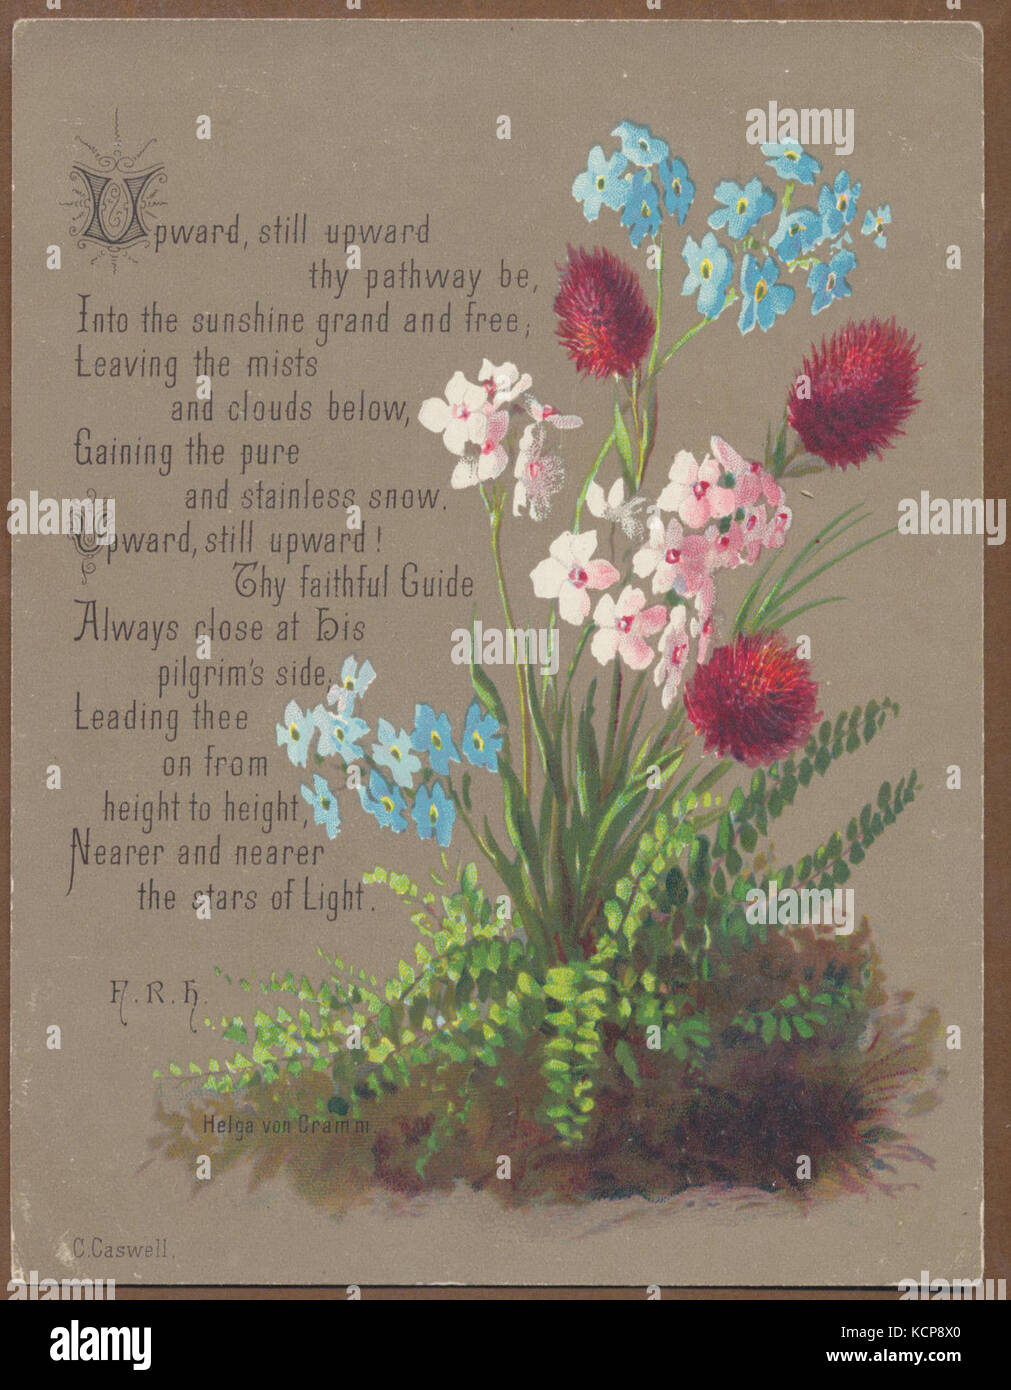 Upward, still upward
thy pathway be,
Into the sunshine grand and free;
Leaving the mists
and clouds below,
Gaining the pure
and stainless snow.
Upward, still upward!
Thy faithful Guide
Always close at His
pilgrim's side.
Leading thee
on from
height to height,
Nearer and nearer
the stars of Light.
F. R. H.
Helga von Cramm.
C. Caswell.
alamy
alamy
alamy
alamy
alamy
alamy
Image ID: KCP8X0
www.alamy.com